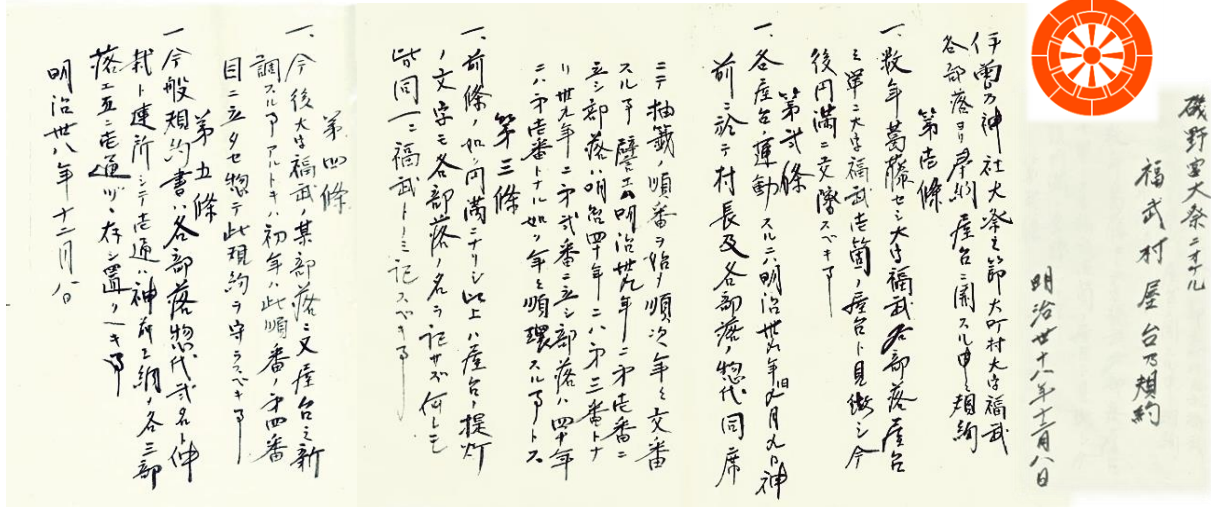 磯野宮大祭ニオケル
福武村屋台乃規約
明治廿十八年十二月八日
伊曽乃神社大祭之節大町村大字福武
各部落ヨリ奉納屋台ニ関スル申シ規約
第壱條
一、数年葛藤セシ大字福武各部落屋台
ミ単ニ大字福武壱箇ノ屋台ト見做シ今
後円満ニ交際スベキ事
第弐條
一、各屋台ノ運動スルニハ明治廿九年旧九月九日神
前ニ於テ村長及各部落ノ惣代同席
ニテ抽籤ノ順番ヲ始メ順次年々交番
スル事譬エハ明治卅九年ニ第壱番ニ
立シ部落ハ明治四十年ニハ第三番トナ
リ卅九年ニ第弐番ニ立シ部落ハ四十年
ニハ第壱番トナル如ク年々順環スル事トス
第三條
一、前條ノ如ク円満ニナリシ以上ハ屋台ノ提灯
ノ文字モ各部落ノ名ヲ記サズ何レモ
皆同一ニ福武トノミ記スベキ事
第四條
一、今後大字福武ノ某部落ニ又屋台ミ新
調スル事アルトキハ初年ハ此順番ノ第四番
目ニ立タセ惣テ此規約ヲ守ラスベキ事
第五條
一今般規約書ハ各部落惣代弐名ト仲
裁ト連所シテ壱通ハ神前エ納メ各三部
落エ互ニ壱通ヅヽ存シ置クベキ事
明治卅八年十二月八日